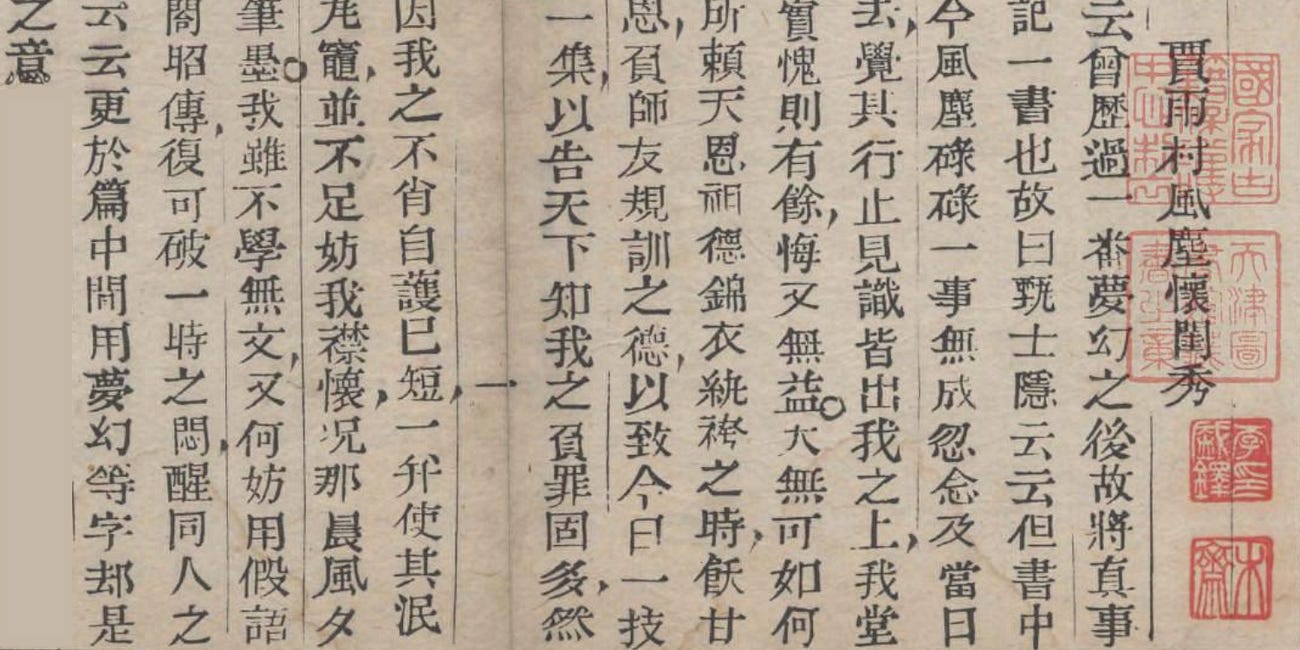 賈雨村風塵懷閨秀
云曾歷過一番夢幻之後故將真事
記一書也故曰甄士隱云云但書中
今風塵碌碌一事無成忽念及當日
去覺其行止見識皆出我之上我堂
實愧則有餘悔又無益大無可如何
所賴天恩祖德錦衣紈袴之時飫甘
恩負師友規訓之德以致今日一技
一集以告天下知我之負罪固多然
一
因我之不肖自護己短一并使其泯
竈並不足妨我襟懷况那晨風夕
筆墨我雖不學無文又何妨用假語
閣昭傳復可破一時之悶醒同人之
云云更於篇中間用夢幻等字却是
之意
李印盛鐸
木齋